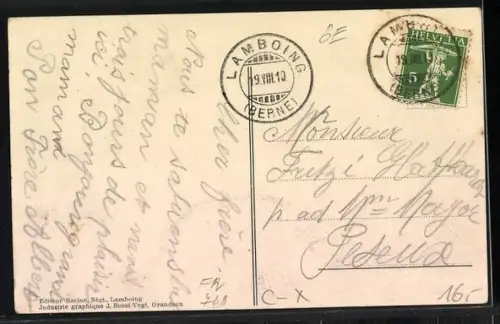 Cher frère.
Nous te saluons
maman et moi
jours de plaisir
ici. Bonjour
maman
Ton frère Albert
LAMBOING
19.VIII.10
(BERNE)
6E
LAMBOING
19.VIII.10
(BERNE)
HELVETIA
5
Monsieur
Fritz
p. ad Mme Mayor
Peseux
Editeur Racine, Négt., Lamboing
Industrie graphique J. Rossi-Vogt, Grandson
C-X
16.-